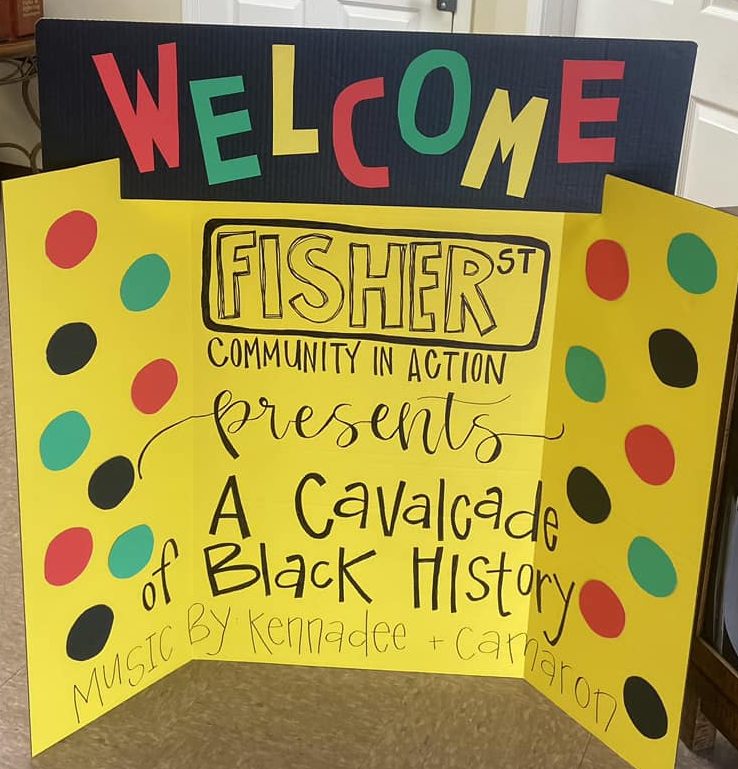 WELCOME
FISHER ST
COMMUNITY IN ACTION
presents
A Cavalcade
of Black History
MUSIC By Kennadee + Camaron